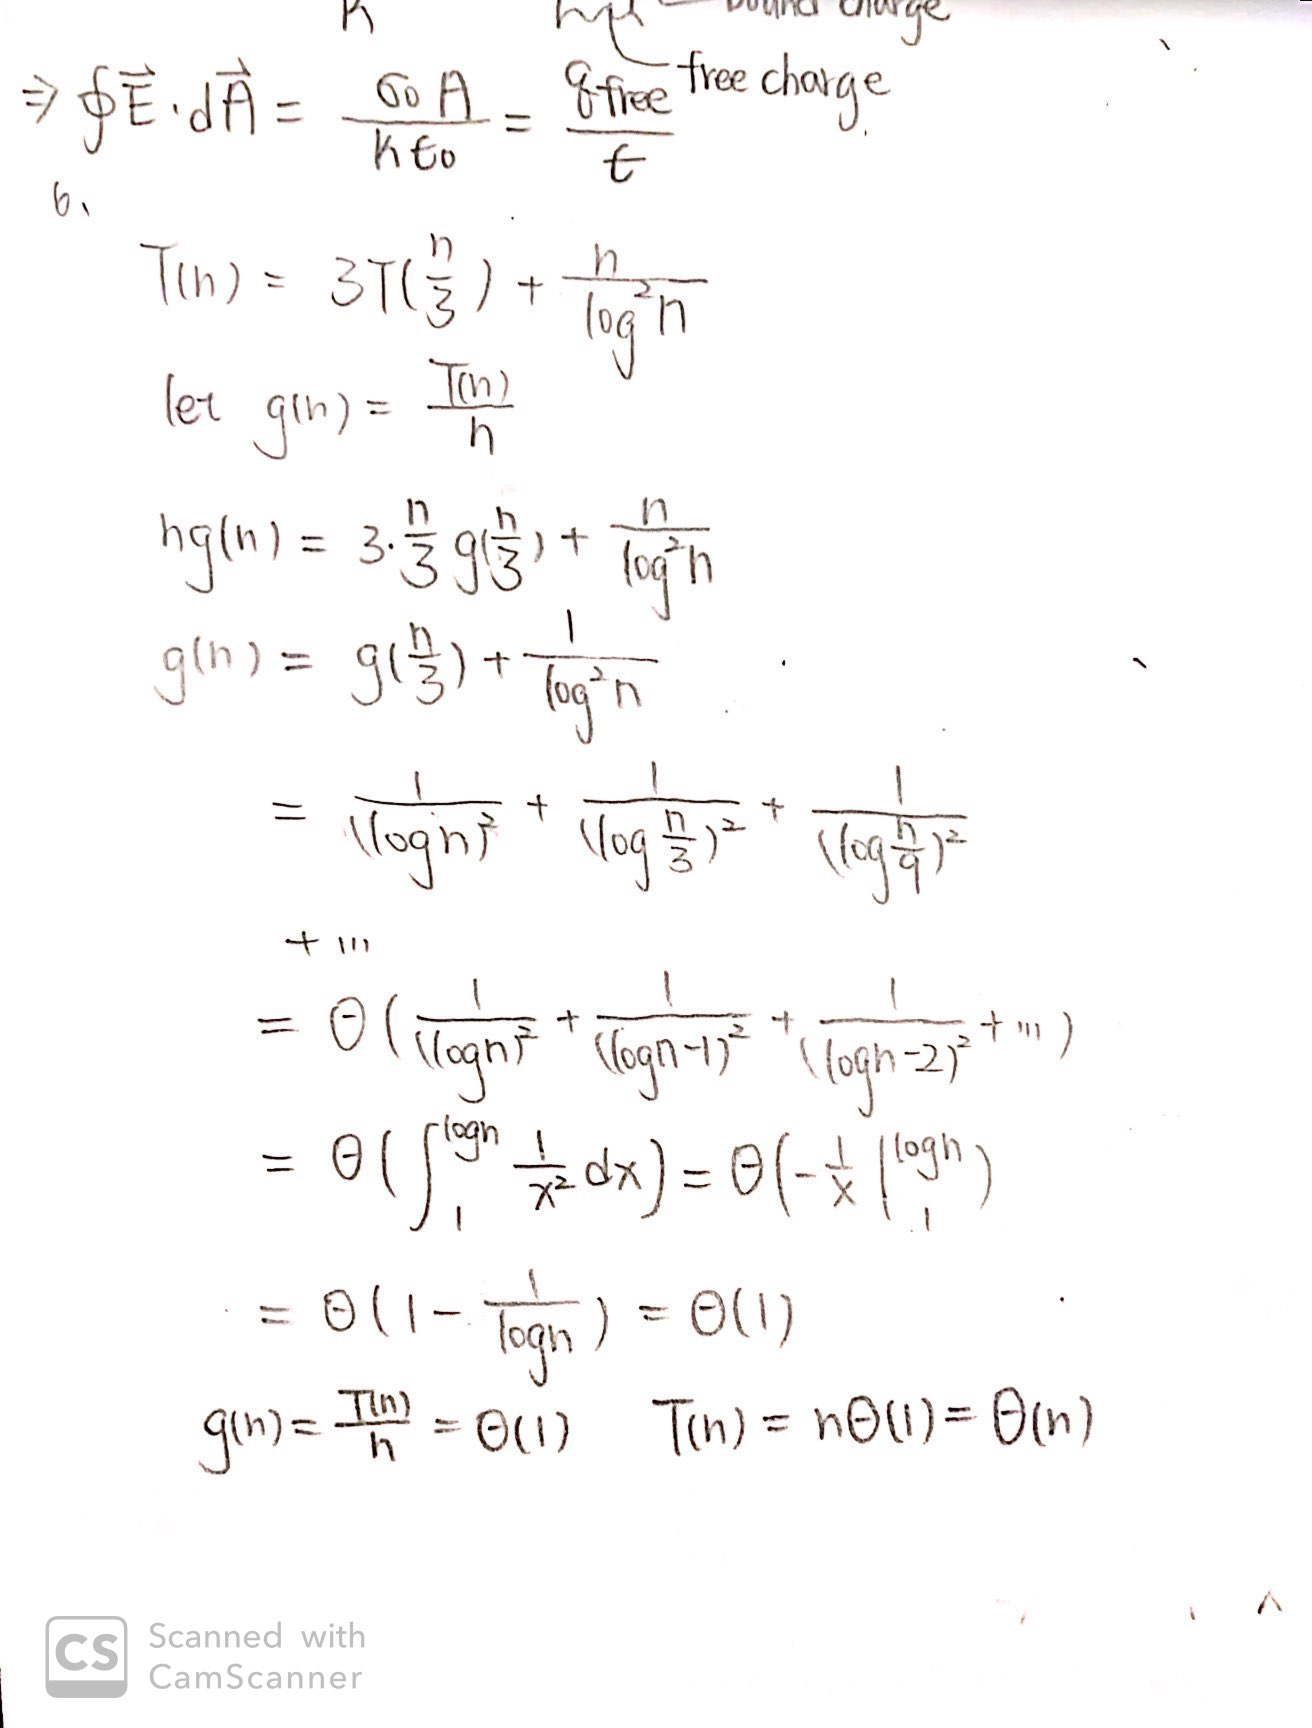 K bound charge
⇒ ∮E⃗·dA⃗ = σ₀A / Kε₀ = q free / ε free charge.
6.
T(n) = 3T(n/3) + n / log²n
let g(n) = T(n) / n
ng(n) = 3·n/3 g(n/3) + n / log²n
g(n) = g(n/3) + 1 / log²n
= 1 / (logn)² + 1 / (log n/3)² + 1 / (log n/9)²
+ ...
= Θ( 1 / (logn)² + 1 / (logn-1)² + 1 / (logn-2)² + ... )
= Θ( ∫₁^logn 1/x² dx ) = Θ( -1/x |₁^logn )
= Θ( 1 - 1/logn ) = Θ(1)
g(n) = T(n)/n = Θ(1) T(n) = nΘ(1) = Θ(n)
CS Scanned with
CamScanner